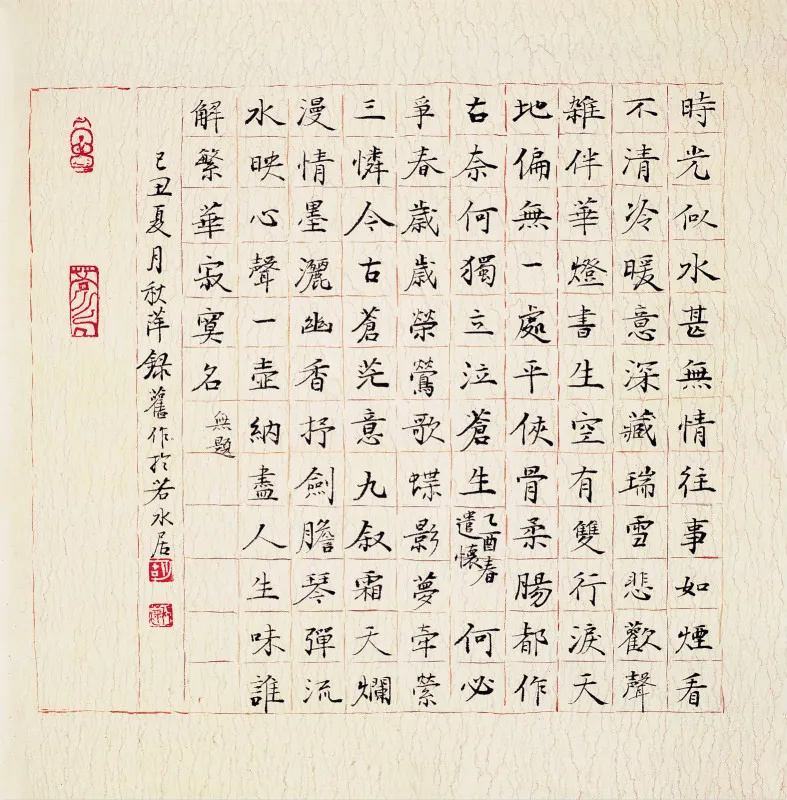 時光似水甚無情往事如煙看
不清冷暖意深藏瑞雪悲歡聲
雜伴華燈書生空有雙行淚天
地偏無一處平俠骨柔腸都作
古奈何獨立泣蒼生
乙酉春
遣懷
何必
爭春歲歲榮鶯歌蝶影夢牽縈
三憐今古蒼茫意九叙霜天爛
漫情墨灑幽香抒劍膽琴彈流
水映心聲一壺納盡人生味誰
解繁華寂寞名
無題
己丑夏月秋萍錄舊作於若水居